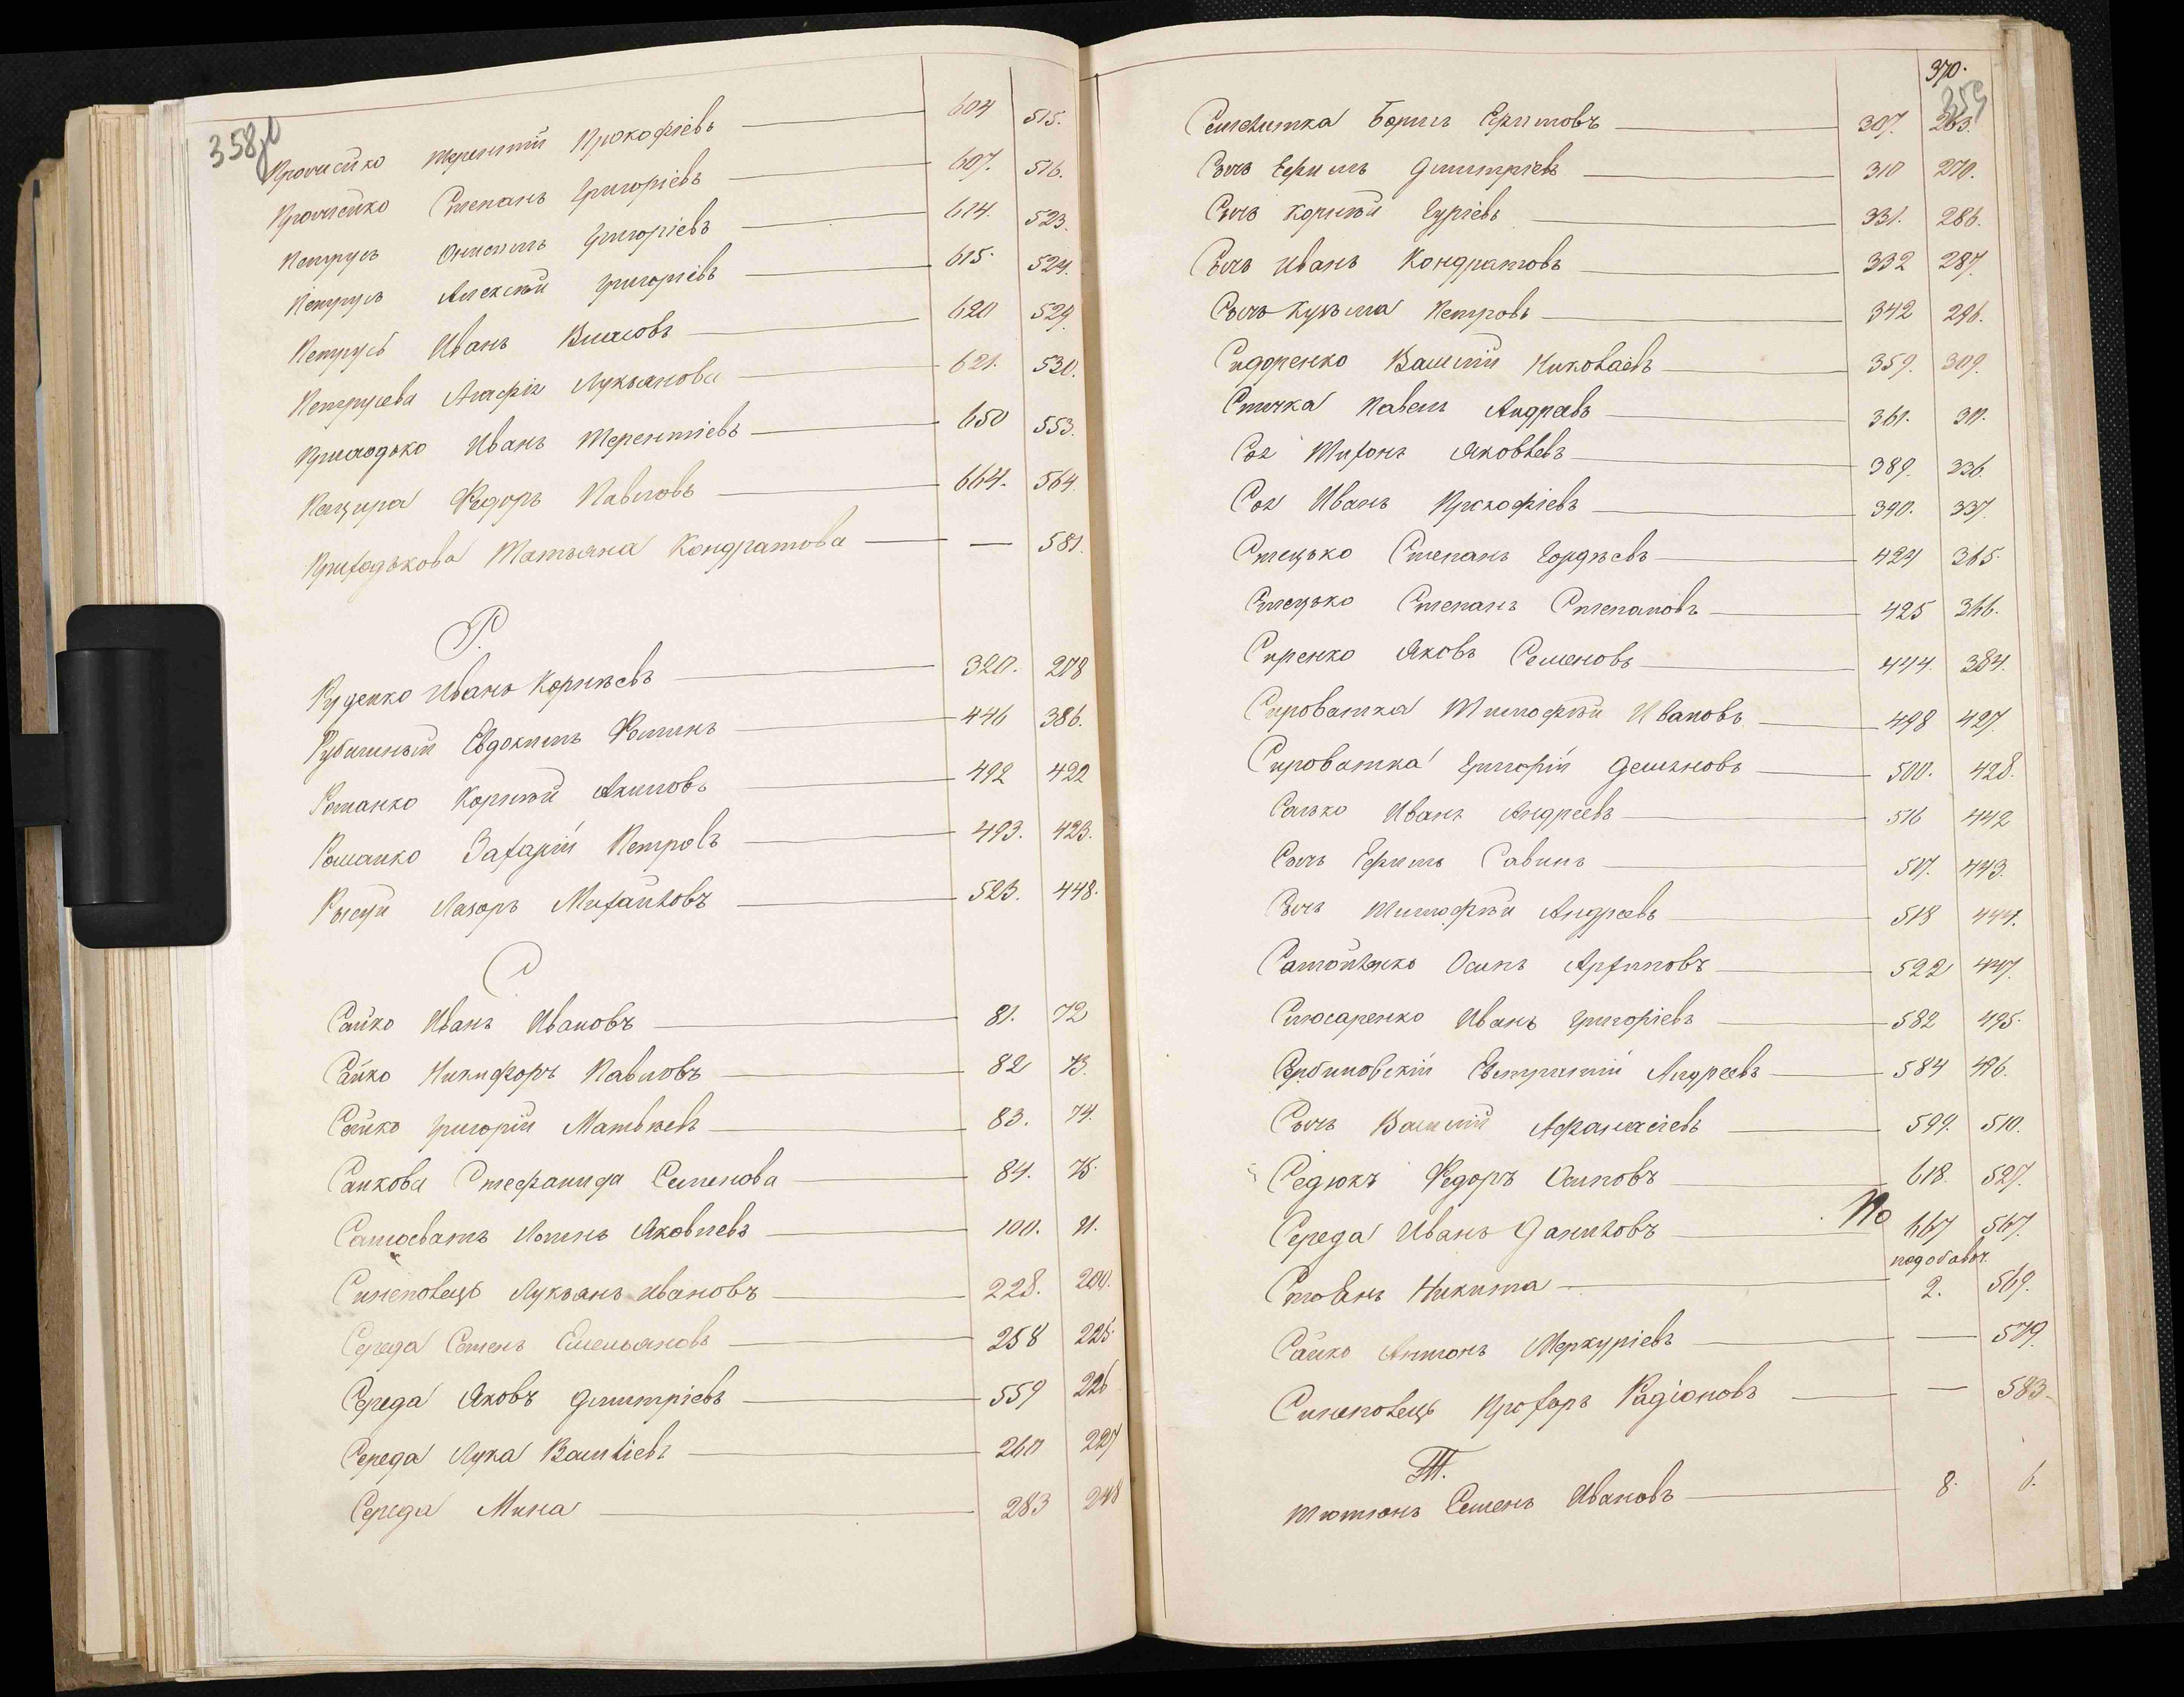 358
Терентій Прокофіевъ 604 515.
Степанъ Григоріевъ 607. 516.
Петрусь Онисимъ Григоріевъ 614. 523.
Петрусь Алексѣй Григоріевъ 615. 524.
Петрусь Иванъ Власовъ 620 529.
Петрусева Агафія Лукьянова 621. 530.
Приходько Иванъ Терентіевъ 650 553.
Федоръ Павловъ 664. 564.
Приходькова Татьяна Кондратова — 581.
Р.
Руденко Иванъ Корнѣевъ 320. 278
Рубишный Евдокимъ Фоминъ 446 386.
Романко Корнѣй Акимовъ 492 422
Романко Захарій Петровъ 493. 423.
Лазоръ Михайловъ 523. 448.
С
Сайко Иванъ Ивановъ 81. 72
Сайко Никифоръ Павловъ 82 73.
Сайко Григорій Матвѣевъ 83. 74.
Сайкова Стефанида Семенова 84. 75.
Самосватъ Логинъ Яковлевъ 100. 91.
Синеповецъ Лукьянъ Ивановъ 228. 200.
Середа Семенъ Емельяновъ 258 225.
Середа Яковъ Дмитріевъ 559 226
Середа Лука Василіевъ 260 227
Середа Мина 283 248
370.
359
Борисъ Ефимовъ 307. 263.
Сычъ Ефимъ Дмитріевъ 310 270.
Сычъ Корнѣй Гуріевъ 331. 286.
Сычъ Иванъ Кондратовъ 332 287.
Сычъ Кузьма Петровъ 342 296.
Сидоренко Василій Николаевъ 359. 309.
Спичка Павелъ Андреевъ 361. 311.
Сог Тихонъ Яковлевъ 389. 336.
Сог Иванъ Прокофіевъ 390. 337.
Стецько Степанъ Гордѣевъ 424 365.
Стецько Степанъ Степановъ 425 366.
Сиренко Яковъ Семеновъ 444. 384.
Сироватка Тимофѣй Ивановъ 498 427.
Сироватка Григорій Демьяновъ 500. 428.
Салько Иванъ Андреевъ 516 442
Сычъ Ефимъ Савинъ 517. 443.
Сычъ Тимофѣй Андреевъ 518 444.
Самойленко Осипъ Архиповъ 522 447.
Слюсаренко Иванъ Григоріевъ 582 495.
Сербиновскій Евстратій Андреевъ 584 496.
Сычъ Василій Афанасіевъ 599. 510.
Седюкъ Федоръ Осиповъ 618. 527.
Середа Иванъ Даниловъ № 667 567.
по добавоч.
Стовнъ Никита 2. 569.
Сайко Антонъ Меркуріевъ — 579.
Синеповецъ Прохоръ Радіоновъ — 583.
Т.
Тютюнъ Семенъ Ивановъ 8. 6.